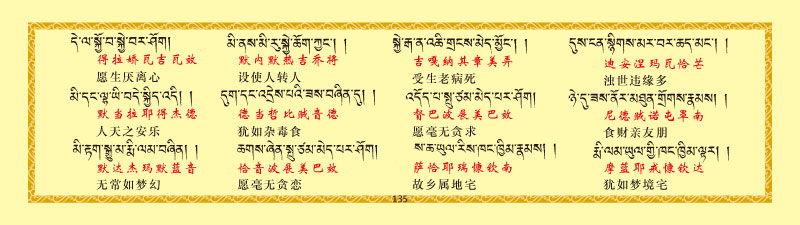 དེ་ལ་སྐྱོ་བ་སྐྱེ་བར་ཤོག།
得拉娇瓦吉瓦效
愿生厌离心
མི་ནས་མི་རུ་སྐྱེ་ཆོག་ཀྱང་། །
默内默热吉乔将
设使人转人
སྐྱེ་རྒ་ན་འཆི་གྲངས་མེད་མྱོང་། །
吉嘎纳其章美弄
受生老病死
དུས་ངན་སྙིགས་མར་བར་ཆད་མང་། །
迪安涅玛瓦恰芒
浊世违缘多
མི་དང་ལྷ་ཡི་བདེ་སྐྱིད་འདི། །
默当拉耶得杰德
人天之安乐
དུག་དང་འདྲེས་པའི་ཟས་བཞིན་དུ། །
德当哲比贼音德
犹如杂毒食
འདོད་པ་སྤུ་ཙམ་མེད་པར་ཤོག།
督巴波展美巴效
愿毫无贪求
ཉེ་དུ་ཟས་ནོར་མཐུན་གྲོགས་རྣམས། །
尼德贼诺屯草南
食财亲友朋
མི་རྟག་སྒྱུ་མ་རྨི་ལམ་བཞིན། །
默达杰玛默蓝音
无常如梦幻
ཆགས་ཞེན་སྤུ་ཙམ་མེད་པར་ཤོག།
恰音波展美巴效
愿毫无贪恋
ས་ཆ་ཡུལ་རིས་ཁང་ཁྱིམ་རྣམས། །
萨恰耶瑞慷钦南
故乡属地宅
རྨི་ལམ་ཡུལ་གྱི་ཁང་ཁྱིམ་ལྟར། །
摩蓝耶戒慷钦达
犹如梦境宅
135